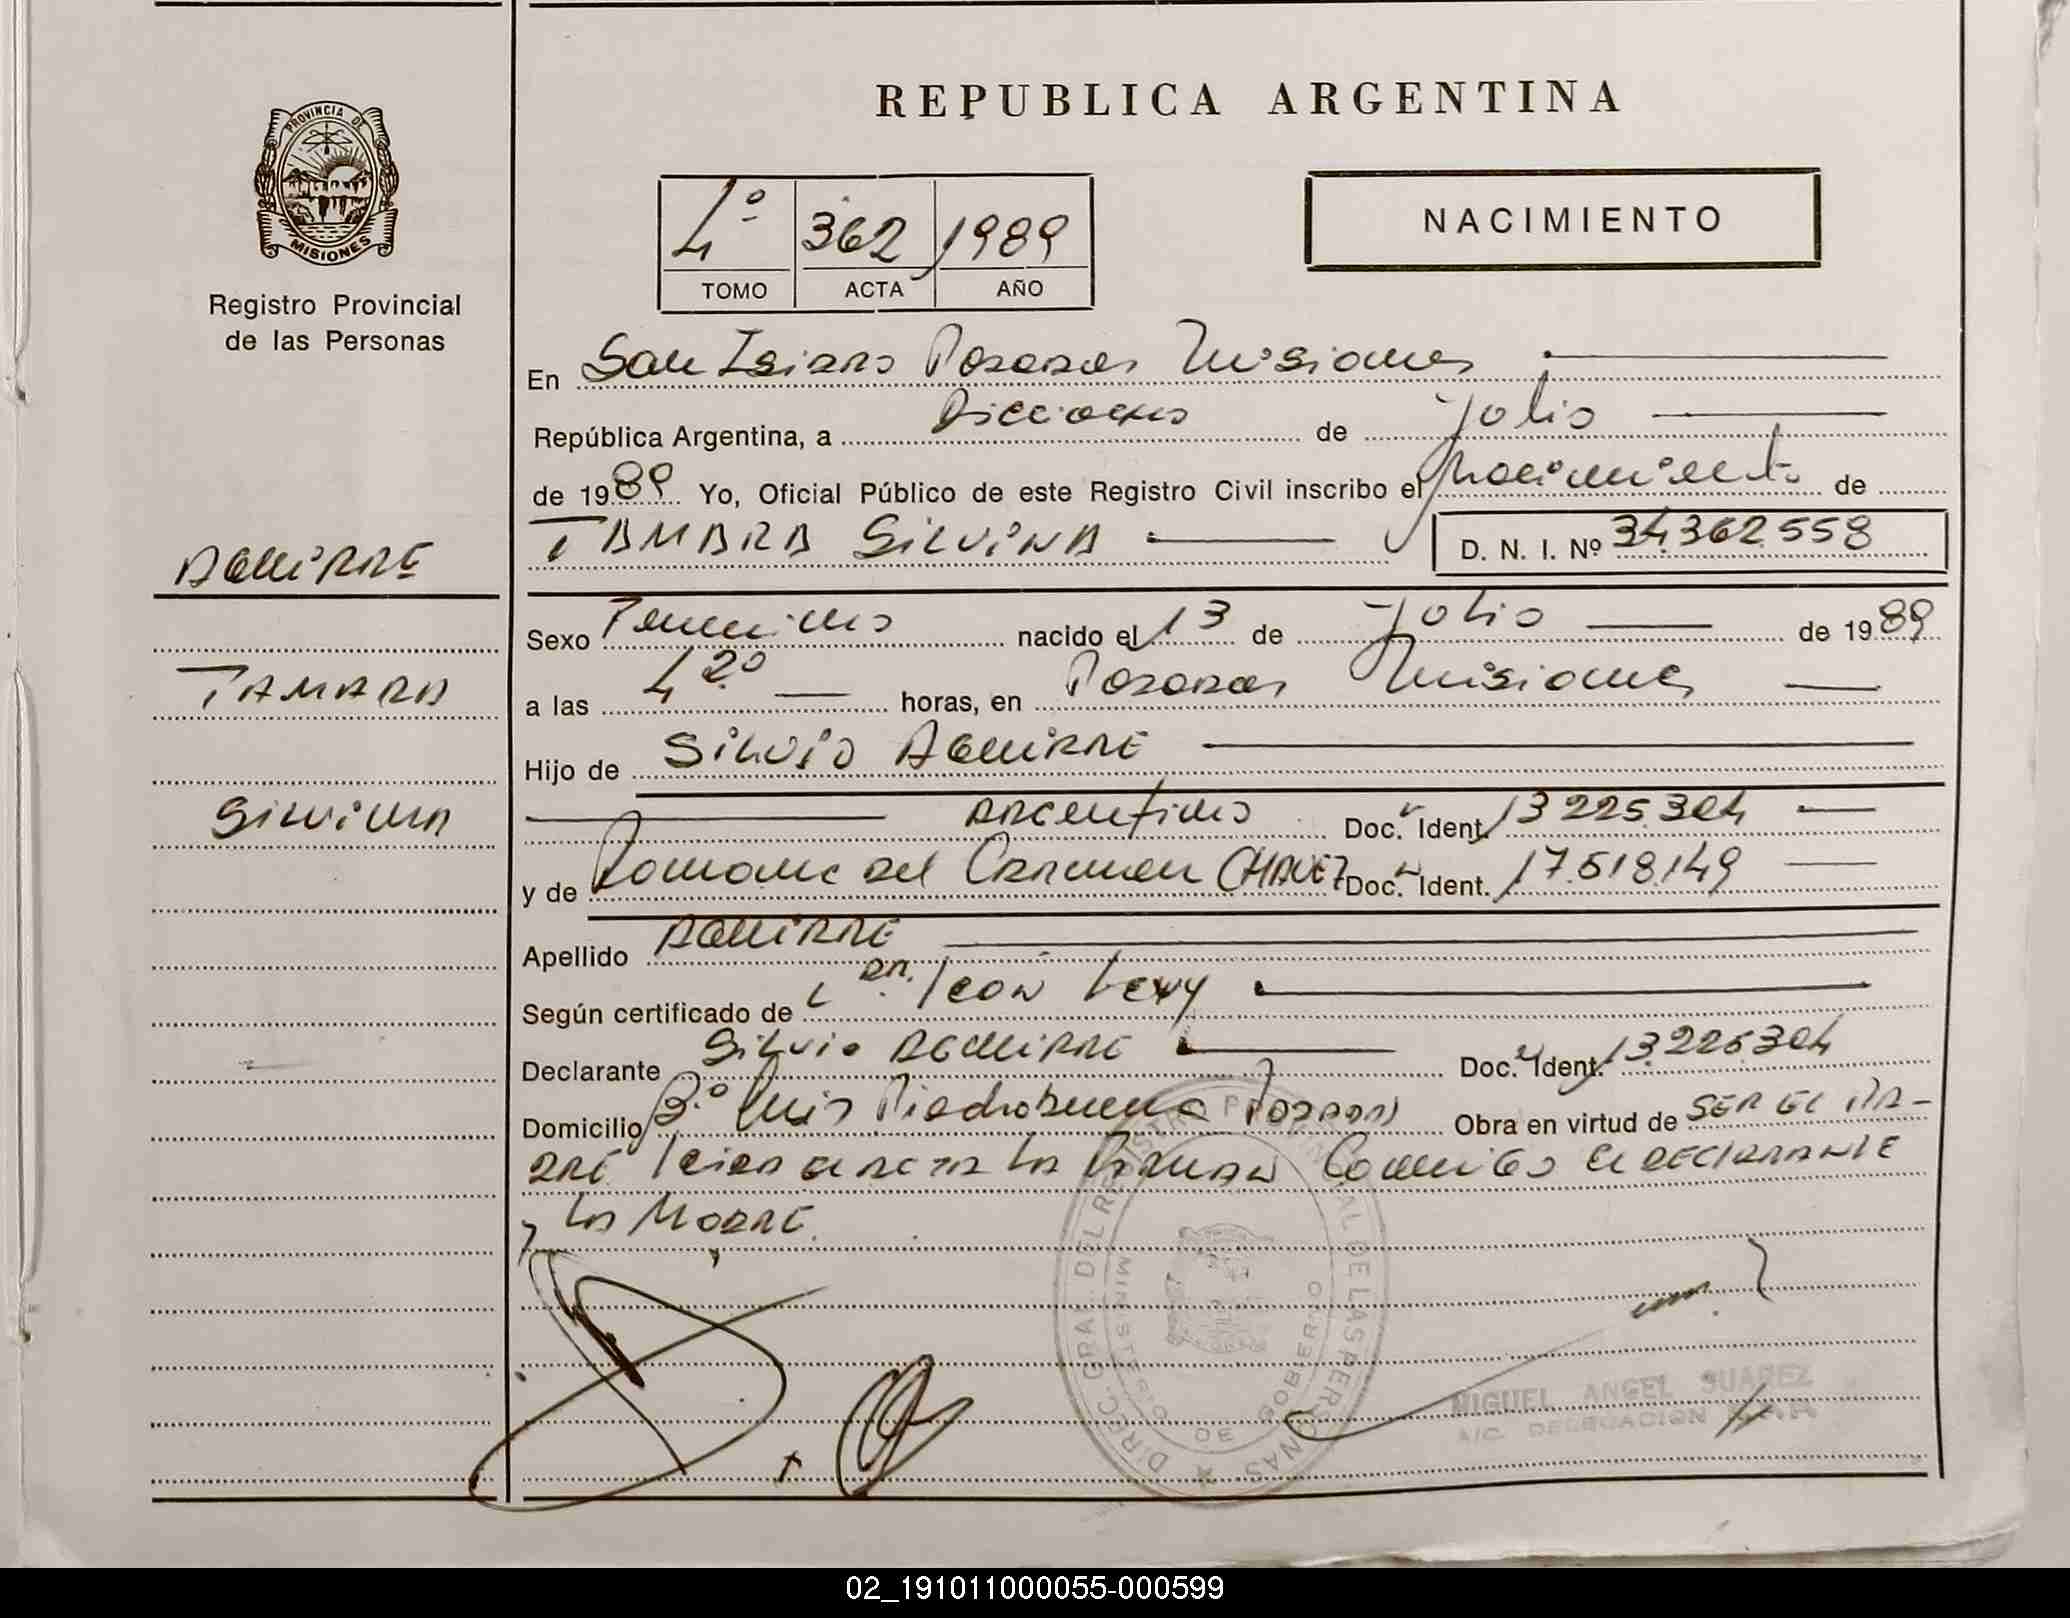 REPUBLICA ARGENTINA
PROVINCIA DE
MISIONES
Registro Provincial
de las Personas
4º 362 1989
TOMO ACTA AÑO
NACIMIENTO
En San Isidro Posadas Misiones
República Argentina, a de Julio
de 1989 Yo, Oficial Público de este Registro Civil inscribo el nacimiento de
TAMARA SILVINA D. N. I. Nº 34.362.558
AGUIRRE
TAMARA
SILVINA
Sexo Femenino nacido el 13 de Julio de 1989
a las 4 20 horas, en Posadas Misiones
Hijo de SILVIO AGUIRRE
ARGENTINO Doc. Ident. 13 225.304
y de del Carmen CHAVEZ Doc. Ident. 17.518.149
Apellido AGUIRRE
Según certificado de DR. León Levy
Declarante SILVIO AGUIRRE Doc. Ident. 13.225304
Domicilio Bº Luis Piedrabuena Posadas Obra en virtud de SER EL PA-
DRE Leida el acta la Firman Conmigo el DECLARANTE
y la MADRE.
DIREC. GRAL. DEL REGISTRO PROVINCIAL DE LAS PERSONAS
MINISTERIO DE GOBIERNO
MIGUEL ANGEL SUAREZ
A/C. DELEGACION
02_191011000055-000599